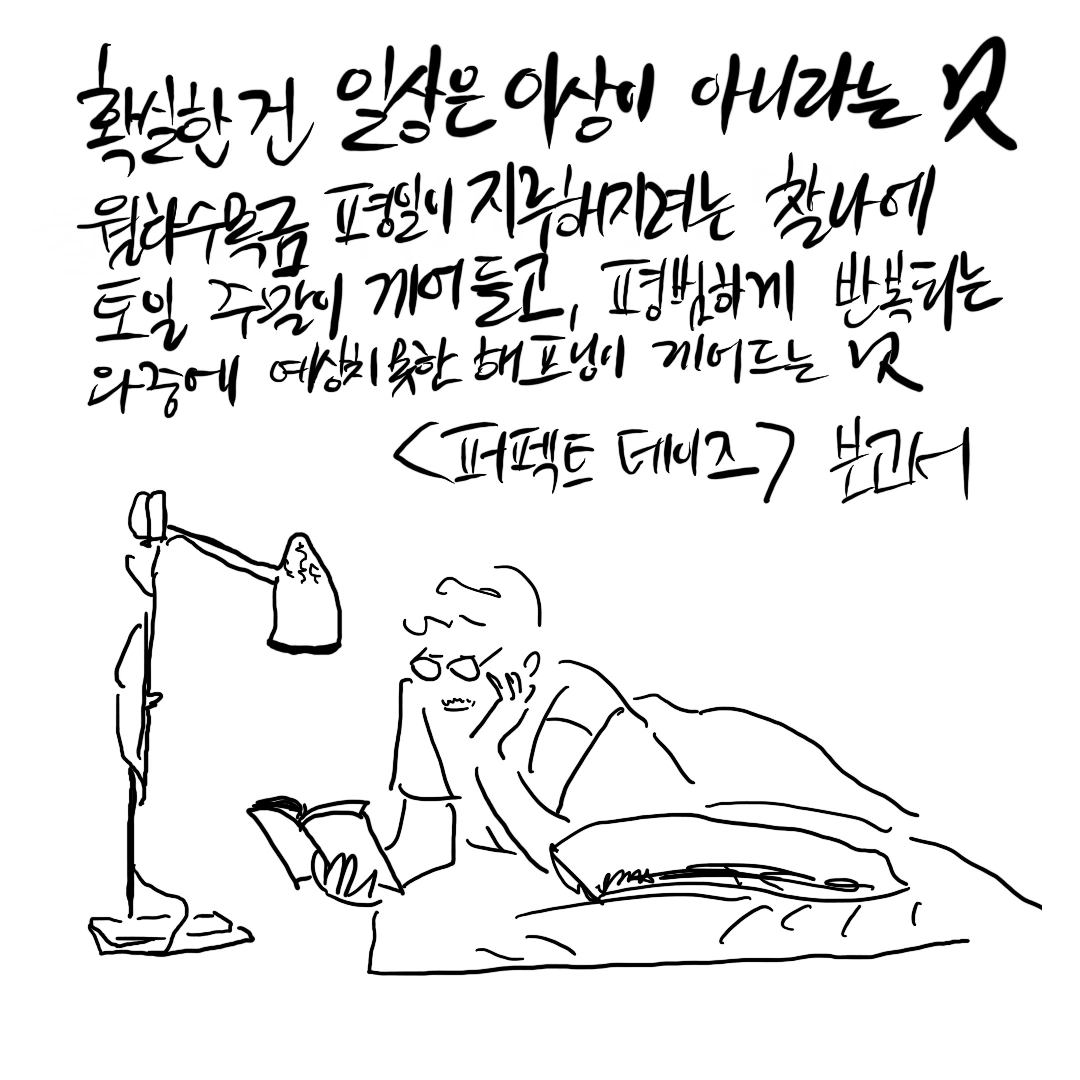 확실한 건 일상은 이상이 아니라는 것
월화수목금 평일이 지루해지려는 찰나에
토일 주말이 끼어들고, 평범하게 반복되는
와중에 예상치 못한 해프닝이 끼어드는 것
<퍼펙트 데이즈> 보고서